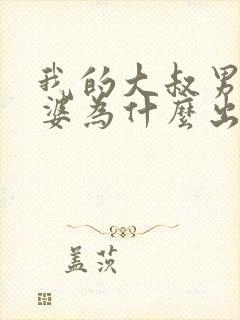 我的大叔男
婆為什麼出
盖茨